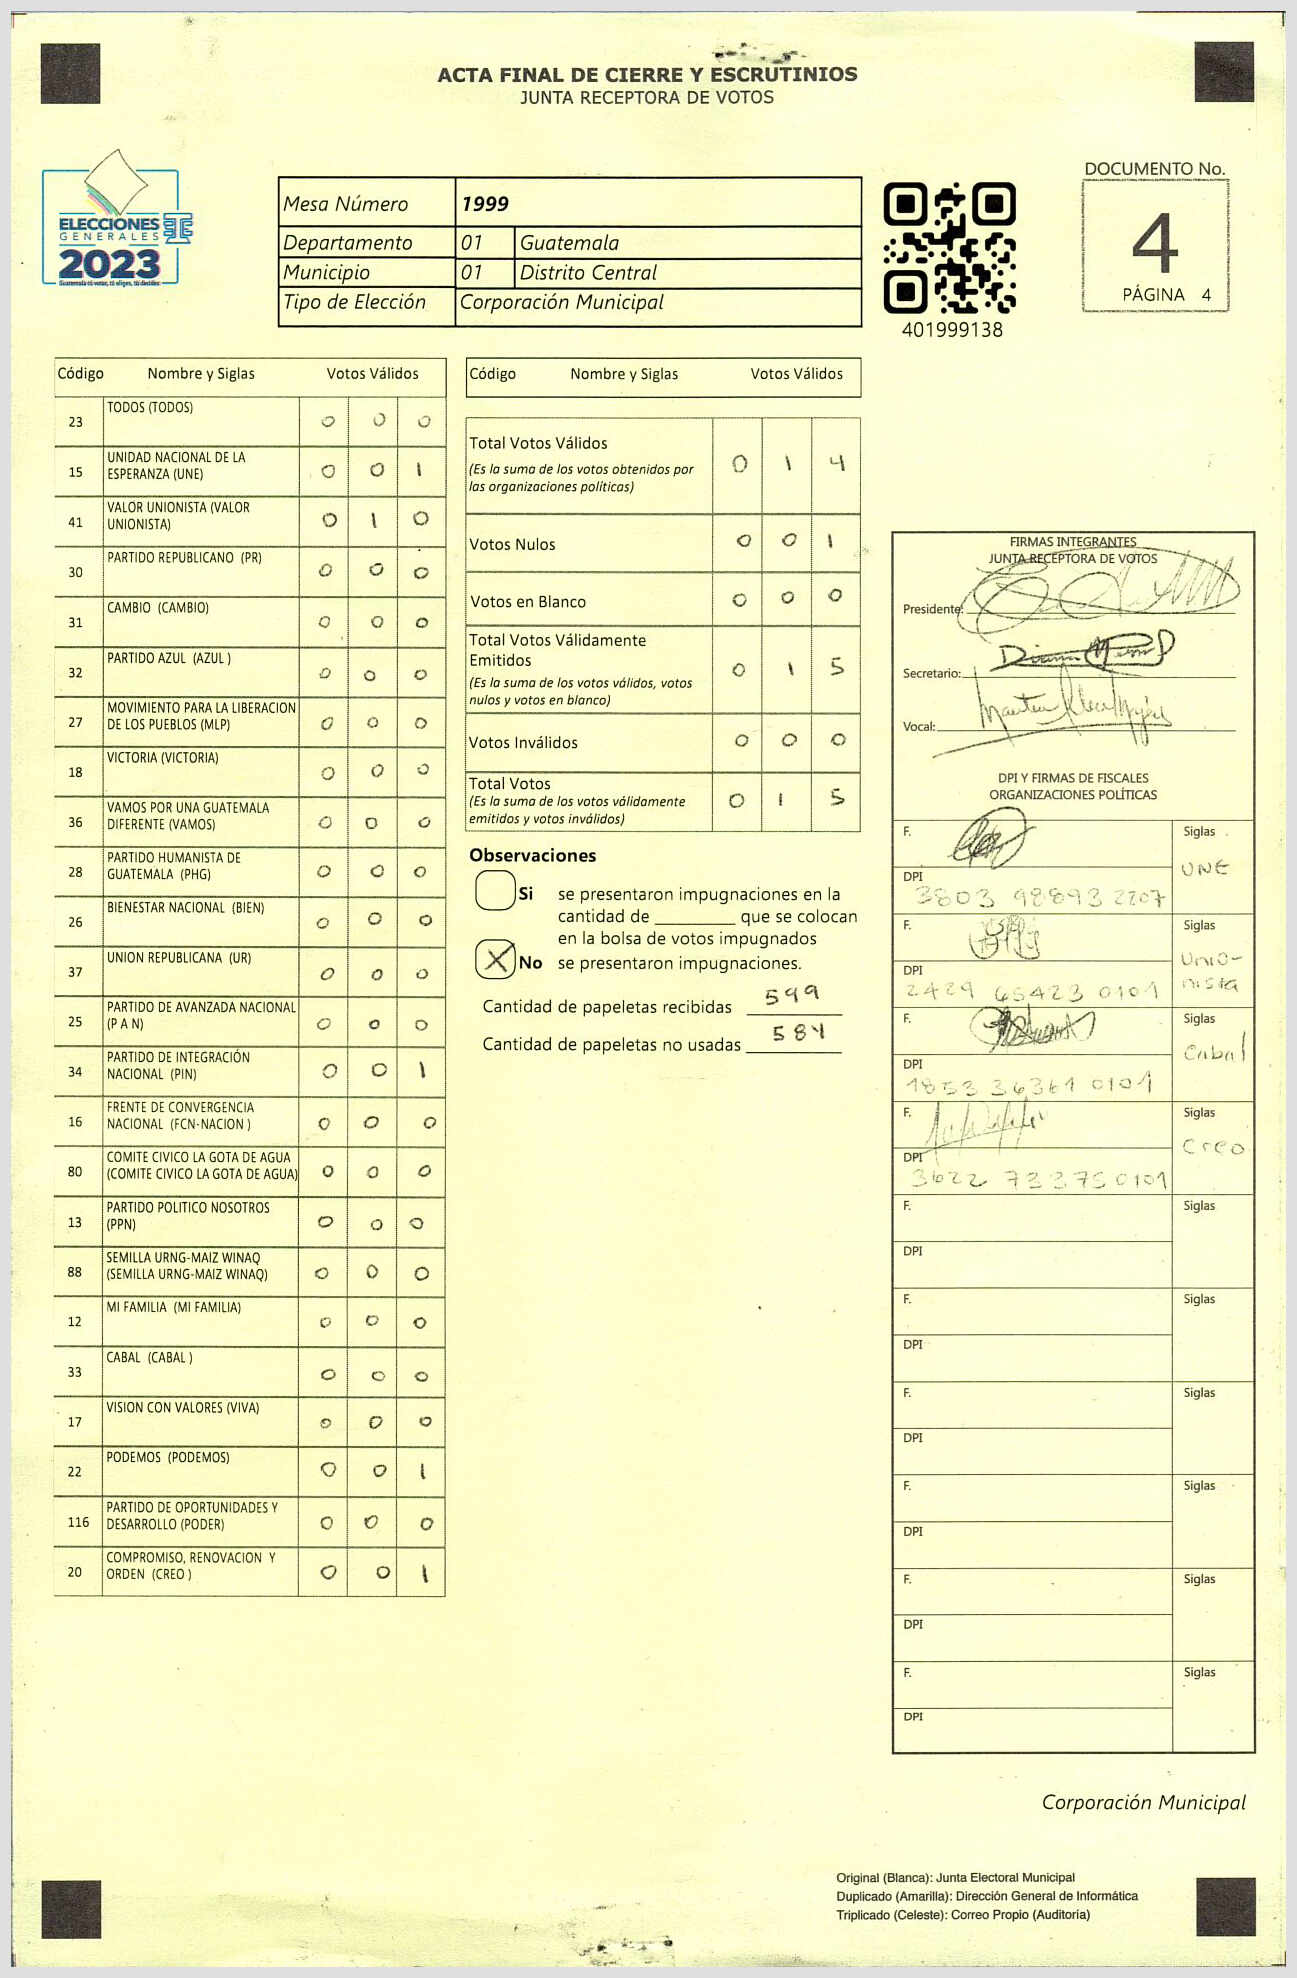 ACTA FINAL DE CIERRE Y ESCRUTINIOS
JUNTA RECEPTORA DE VOTOS
ELECCIONES
GENERALES
2023
Guatemala tú votas, tú eliges, tú decides
Mesa Número 1999
Departamento 01 Guatemala
Municipio 01 Distrito Central
Tipo de Elección Corporación Municipal
401999138
DOCUMENTO No.
4
PÁGINA 4
Código Nombre y Siglas Votos Válidos
23 TODOS (TODOS) 0 0 0
15 UNIDAD NACIONAL DE LA
ESPERANZA (UNE) 0 0 1
41 VALOR UNIONISTA (VALOR
UNIONISTA) 0 1 0
30 PARTIDO REPUBLICANO (PR) 0 0 0
31 CAMBIO (CAMBIO) 0 0 0
32 PARTIDO AZUL (AZUL ) 0 0 0
27 MOVIMIENTO PARA LA LIBERACION
DE LOS PUEBLOS (MLP) 0 0 0
18 VICTORIA (VICTORIA) 0 0 0
36 VAMOS POR UNA GUATEMALA
DIFERENTE (VAMOS) 0 0 0
28 PARTIDO HUMANISTA DE
GUATEMALA (PHG) 0 0 0
26 BIENESTAR NACIONAL (BIEN) 0 0 0
37 UNION REPUBLICANA (UR) 0 0 0
25 PARTIDO DE AVANZADA NACIONAL
(P A N) 0 0 0
34 PARTIDO DE INTEGRACIÓN
NACIONAL (PIN) 0 0 1
16 FRENTE DE CONVERGENCIA
NACIONAL (FCN-NACION ) 0 0 0
80 COMITE CIVICO LA GOTA DE AGUA
(COMITE CIVICO LA GOTA DE AGUA) 0 0 0
13 PARTIDO POLITICO NOSOTROS
(PPN) 0 0 0
88 SEMILLA URNG-MAIZ WINAQ
(SEMILLA URNG-MAIZ WINAQ) 0 0 0
12 MI FAMILIA (MI FAMILIA) 0 0 0
33 CABAL (CABAL ) 0 0 0
17 VISION CON VALORES (VIVA) 0 0 0
22 PODEMOS (PODEMOS) 0 0 1
116 PARTIDO DE OPORTUNIDADES Y
DESARROLLO (PODER) 0 0 0
20 COMPROMISO, RENOVACION Y
ORDEN (CREO ) 0 0 1
Código Nombre y Siglas Votos Válidos
Total Votos Válidos 0 1 4
(Es la suma de los votos obtenidos por
las organizaciones políticas)
Votos Nulos 0 0 1
Votos en Blanco 0 0 0
Total Votos Válidamente
Emitidos 0 1 5
(Es la suma de los votos válidos, votos
nulos y votos en blanco)
Votos Inválidos 0 0 0
Total Votos 0 1 5
(Es la suma de los votos válidamente
emitidos y votos inválidos)
Observaciones
Si se presentaron impugnaciones en la
cantidad de ________ que se colocan
en la bolsa de votos impugnados
X No se presentaron impugnaciones.
Cantidad de papeletas recibidas 599
Cantidad de papeletas no usadas 584
FIRMAS INTEGRANTES
JUNTA RECEPTORA DE VOTOS
Presidente:
Secretario:
Vocal:
DPI Y FIRMAS DE FISCALES
ORGANIZACIONES POLÍTICAS
F. Siglas
UNE
DPI
3803 98893 2207
F. Siglas
Unio-
nista
DPI
2429 65423 0101
F. Siglas
Cabal
DPI
1853 36361 0101
F. Siglas
Creo
DPI
3622 73375 0101
F. Siglas
DPI
F. Siglas
DPI
F. Siglas
DPI
F. Siglas
DPI
F. Siglas
DPI
F. Siglas
DPI
Corporación Municipal
Original (Blanca): Junta Electoral Municipal
Duplicado (Amarilla): Dirección General de Informática
Triplicado (Celeste): Correo Propio (Auditoria)